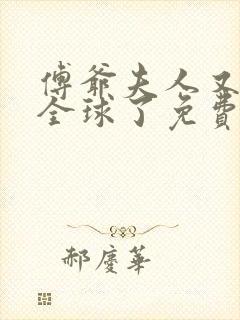 傅爺夫人又
全球了免費
郝慶華